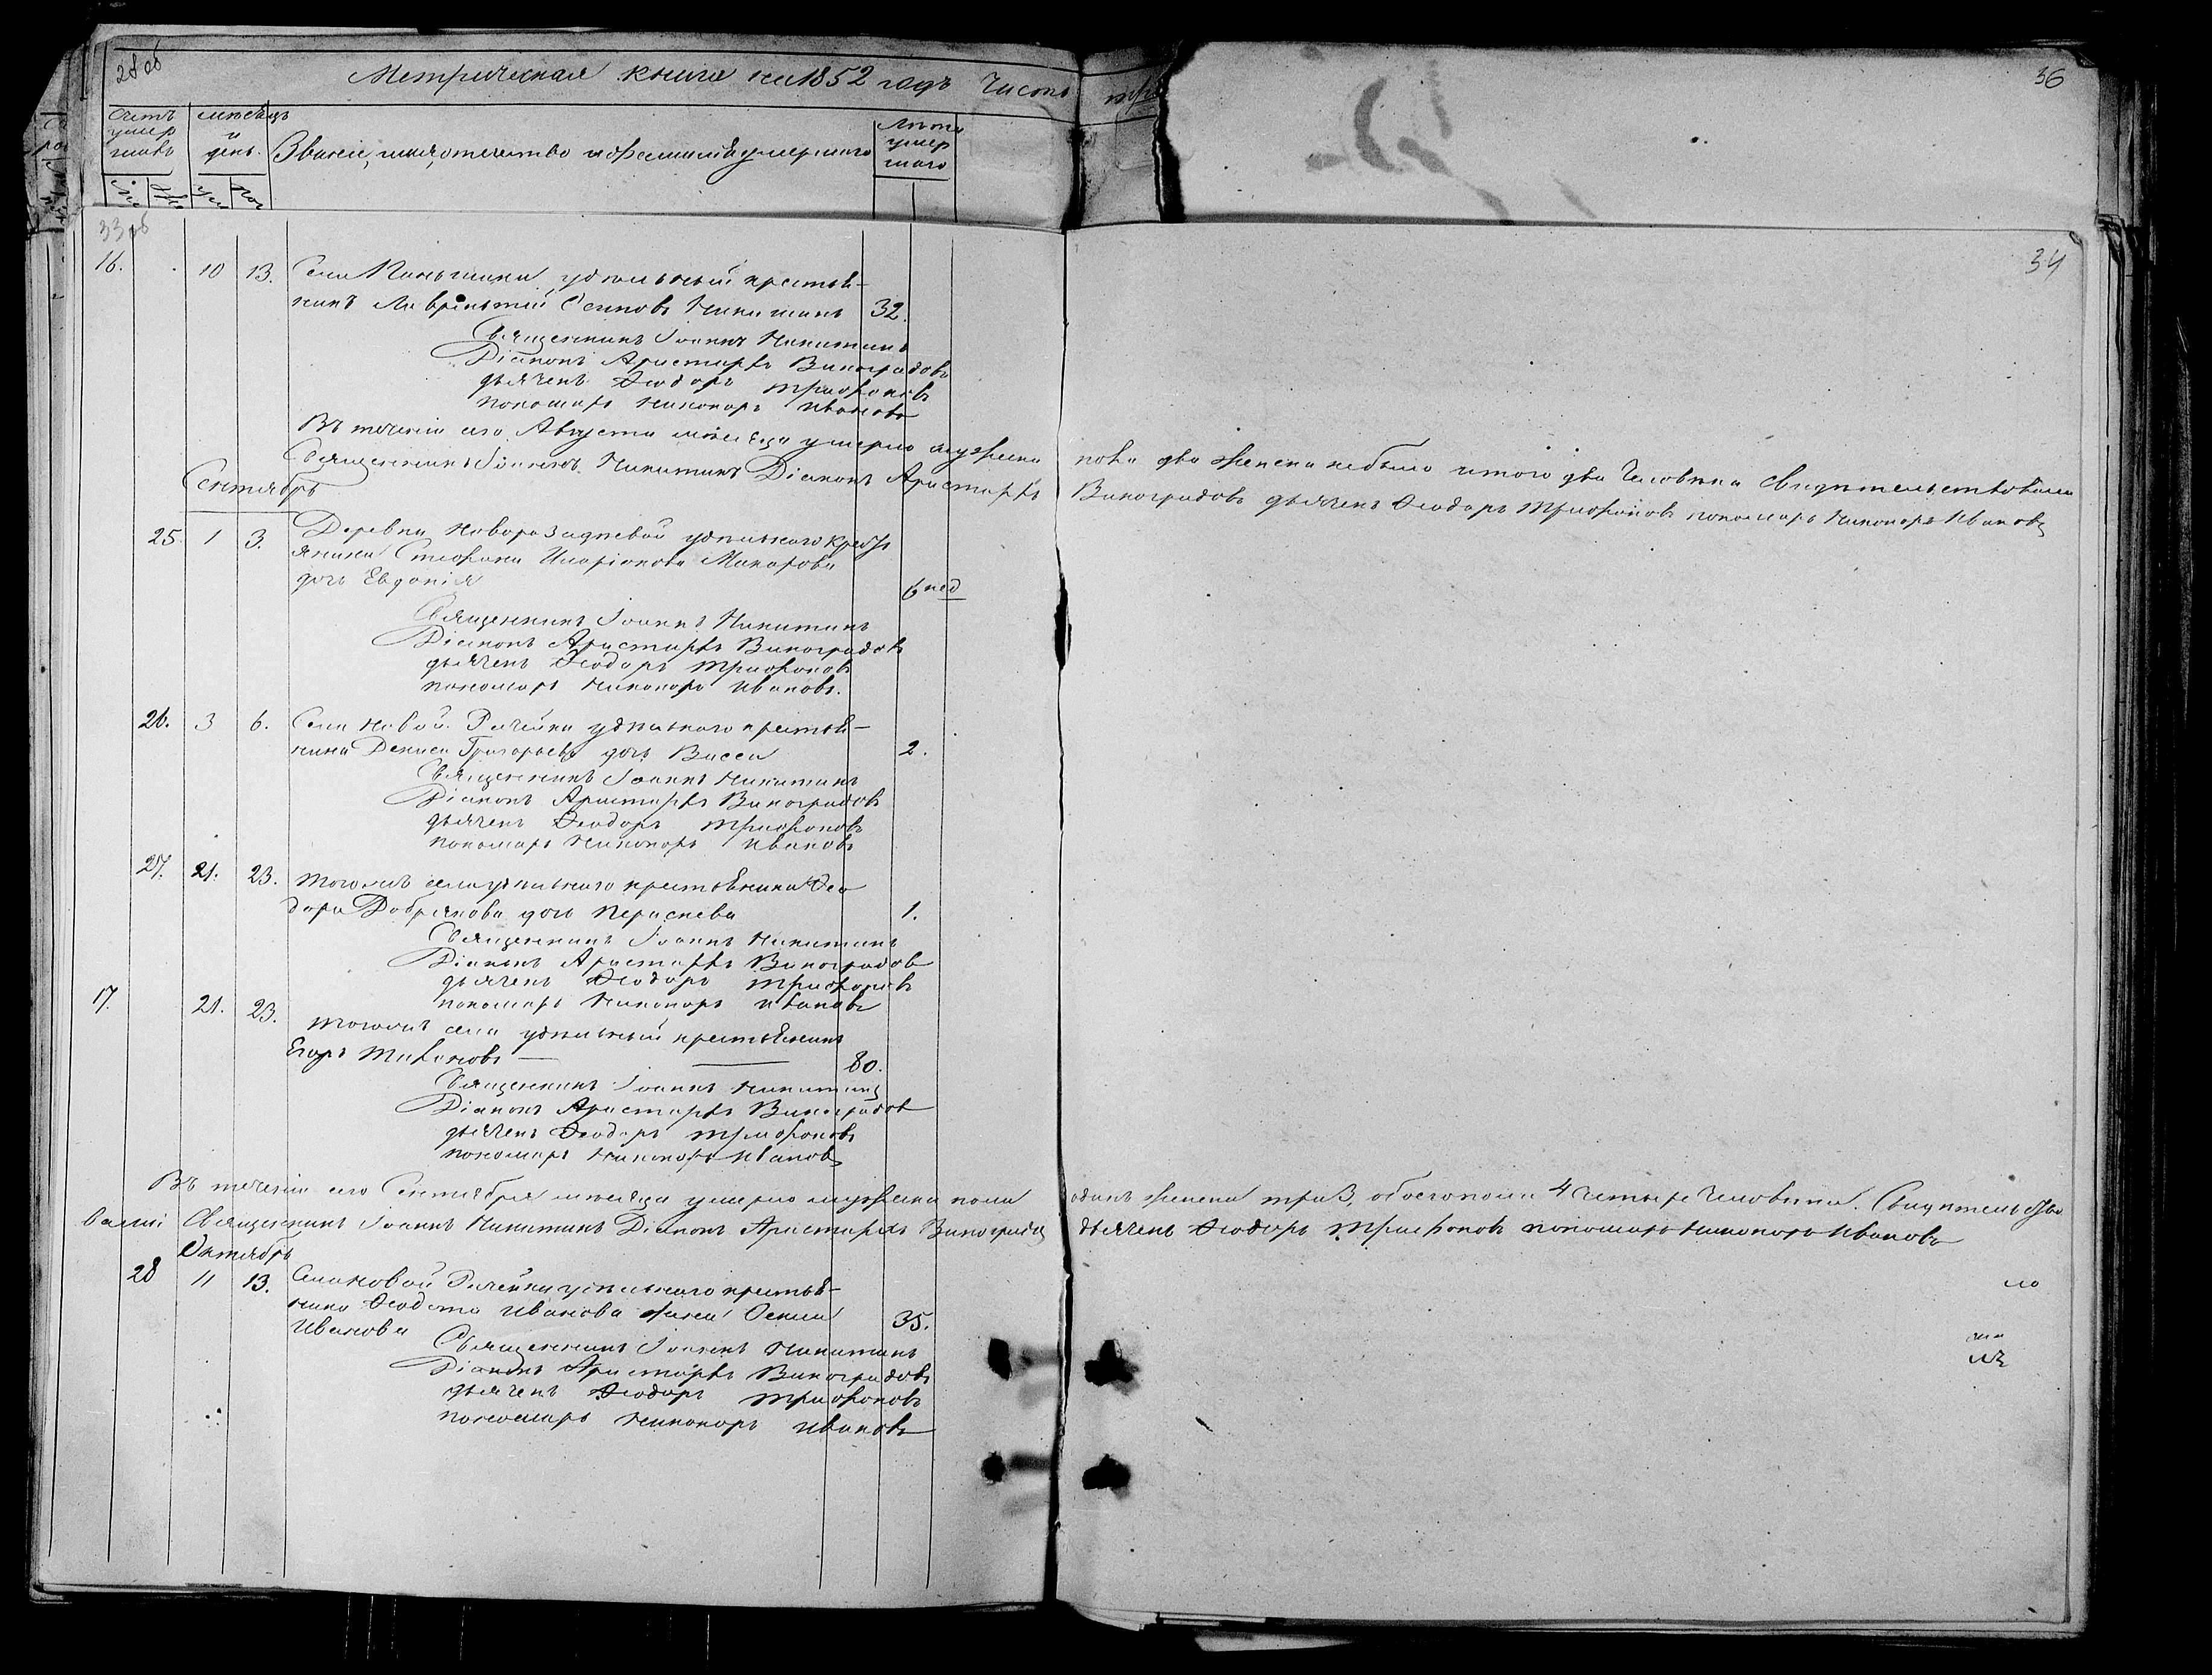 28 об
Метрическая книга на 1852 годъ Часть тре
36
Счетъ умершихъ
Мѣсяцъ и день.
Званіе, имя, отечество и фамилія умершаго
Лѣта умершаго
33 об
34
16. 10 13. Села удѣльный крестья-
нинъ Лаврентій Осиповъ Никитинъ 32.
Священникъ Іоаннъ Никитинъ
Діаконъ Аристархъ Виноградовъ
дьячекъ Ѳеодоръ Трифоновъ
пономарь Никоноръ Ивановъ
Въ теченіи сего Августа мѣсяца умерло мужеска пола два женска небыло итого два Человѣка Свидѣтельствовали
Священникъ Іоаннъ Никитинъ Діаконъ Аристархъ Виноградовъ дьячекъ Ѳеодоръ Трифоновъ пономарь Никоноръ Ивановъ
Сентябрь
25. 1 3. Деревни удѣльнаго крестья
янина Стефана Иларіонова Макарова
дочь Евдокія 6 нед
Священникъ Іоаннъ Никитинъ
Діаконъ Аристархъ Виноградовъ
дьячекъ Ѳеодоръ Трифоновъ
пономарь Никоноръ Ивановъ.
26. 3 6. Села Новой Рачейки удѣльнаго крестья-
нина Дениса Григорьева дочь Васса 2.
Священникъ Іоаннъ Никитинъ
Діаконъ Аристархъ Виноградовъ
дьячекъ Ѳеодоръ Трифоновъ
пономарь Никоноръ Ивановъ
27. 21. 23. Тогожъ села удѣльнаго крестьянина Ѳео
дора Добрякова дочь Параскева 1.
Священникъ Іоаннъ Никитинъ
Діаконъ Аристархъ Виноградовъ
дьячекъ Ѳеодоръ Трифоновъ
пономарь Никоноръ Ивановъ
17. 21. 23. Тогожъ села удѣльный крестьянинъ
Егоръ Тихоновъ 80.
Священникъ Іоаннъ Никитинъ
Діаконъ Аристархъ Виноградовъ
дьячекъ Ѳеодоръ Трифоновъ
пономарь Никоноръ Ивановъ
Въ теченіи сего Сентября мѣсяца умерло мужеска пола одинъ женска три 3, обоего пола 4 четыре Человѣка. Свидѣтельство
вали: Священникъ Іоаннъ Никитинъ Діаконъ Аристархъ Виноградовъ дьячекъ Ѳеодоръ Трифоновъ пономарь Никоноръ Ивановъ
Октябрь
28 11 13. Села Новой Рачейки удѣльнаго крестья-
нина Ѳеодота Иванова жена Ксенія 35.
Иванова
Священникъ Іоаннъ Никитинъ
Діаконъ Аристархъ Виноградовъ
дьячекъ Ѳеодоръ Трифоновъ
пономарь Никоноръ Ивановъ